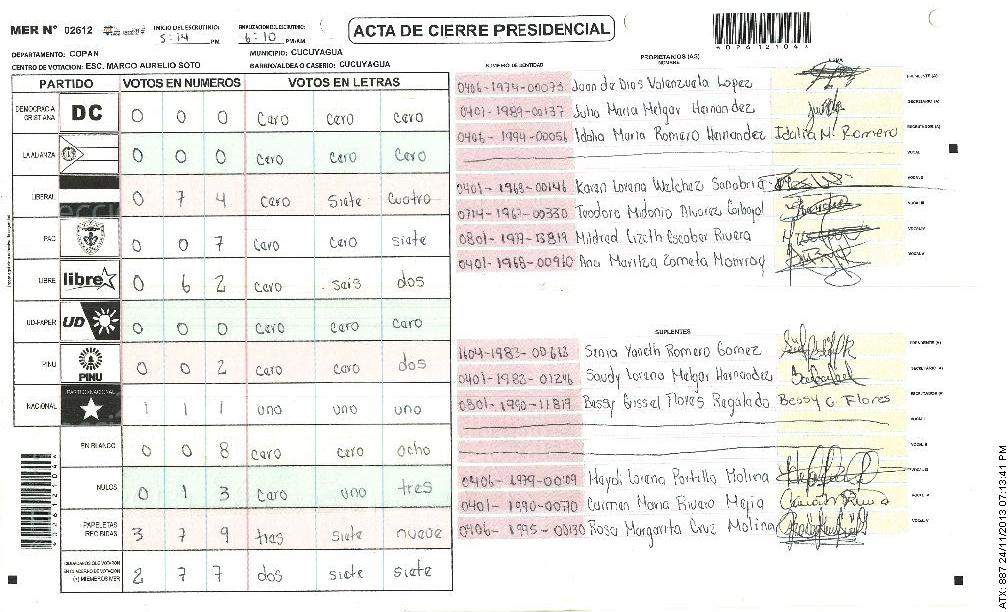 MER N° 02612
INICIO DEL ESCRUTINIO: 5:14 PM
FINALIZACION DEL ESCRUTINIO: 6:10 PM/AM
ACTA DE CIERRE PRESIDENCIAL
DEPARTAMENTO: COPAN
MUNICIPIO: CUCUYAGUA
CENTRO DE VOTACION: ESC. MARCO AURELIO SOTO
BARRIO/ALDEA O CASERIO: CUCUYAGUA
PARTIDO VOTOS EN NUMEROS VOTOS EN LETRAS
DEMOCRACIA CRISTIANA DC 0 0 0 cero cero cero
LA ALIANZA 0 0 0 cero cero cero
LIBERAL 0 7 4 cero siete cuatro
PAC 0 0 7 cero cero siete
LIBRE libre 0 6 2 cero seis dos
UD-FAPER UD 0 0 0 cero cero cero
PINU PINU 0 0 2 cero cero dos
NACIONAL PARTIDO NACIONAL 1 1 1 uno uno uno
EN BLANCO 0 0 8 cero cero ocho
NULOS 0 1 3 cero uno tres
PAPELETAS RECIBIDAS 3 7 9 tres siete nueve
CIUDADANOS QUE VOTARON EN CUADERNO DE VOTACION (+) MIEMBROS MER 2 7 7 dos siete siete
NUMERO DE IDENTIDAD PROPIETARIOS (AS) NOMBRE FIRMA
0406-1974-00073 Juan de Dios Valenzuela Lopez PRESIDENTE (A)
0401-1989-00137 Julia Maria Melgar Hernandez SECRETARIO (A)
0406-1994-00056 Idalia Maria Romero Hernandez Idalia M. Romero ESCRUTADOR (A)
VOCAL I
0401-1968-00146 Karen Lorena Welchez Sanabria VOCAL II
0714-1967-00330 Teodoro Midonio Alvarez Carbajal VOCAL III
0801-1977-13819 Mildred Lizeth Escobar Rivera VOCAL IV
0401-1968-00910 Ana Maritza Zometa Monroy VOCAL V
SUPLENTES
1604-1983-00613 Senia Yaneth Romero Gomez PRESIDENTE (A)
0401-1982-01246 Saudy Lorena Melgar Hernandez SECRETARIO (A)
0801-1990-11819 Bessy Gissel Flores Regalado Bessy G. Flores ESCRUTADOR (A)
VOCAL I
VOCAL II
0406-1979-00109 Haydi Lorena Portillo Molina VOCAL III
0401-1990-00770 Carmen Maria Rivera Mejia VOCAL IV
0406-1995-00130 Rosa Margarita Cruz Molina VOCAL V
ATX: 887 24/11/2013 07:13:41 PM